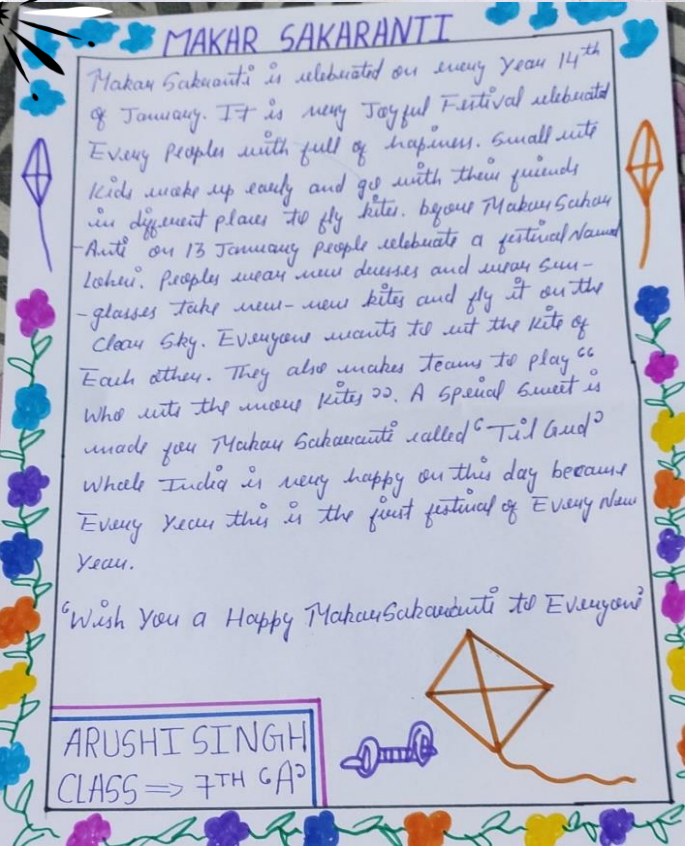 MAKAR SAKARANTI
Makar Sakranti is celebrated on every year 14th
of January. It is very Joyful Festival celebrated
Every Peoples with full of hapiness. Small cute
Kids wake up early and go with their friends
in different places to fly kites. before Makar Sakar
-Anti on 13 January people celebrate a festival Named
Loheri. Peoples wear new dresses and wear sun-
-glasses take new-new kites and fly it on the
Clear Sky. Everyone wants to cut the Kite of
Each other. They also makes teams to play “
Who cuts the more Kites ”. A Special Sweet is
made for Makar Sakaranti called ‘Til Gud’
Whole India is very happy on this day because
Every Year this is the first festival of Every New
Year.
‘Wish You a Happy Makar Sakaranti to Everyone’
ARUSHI SINGH
CLASS ⇒ 7TH ‘A’